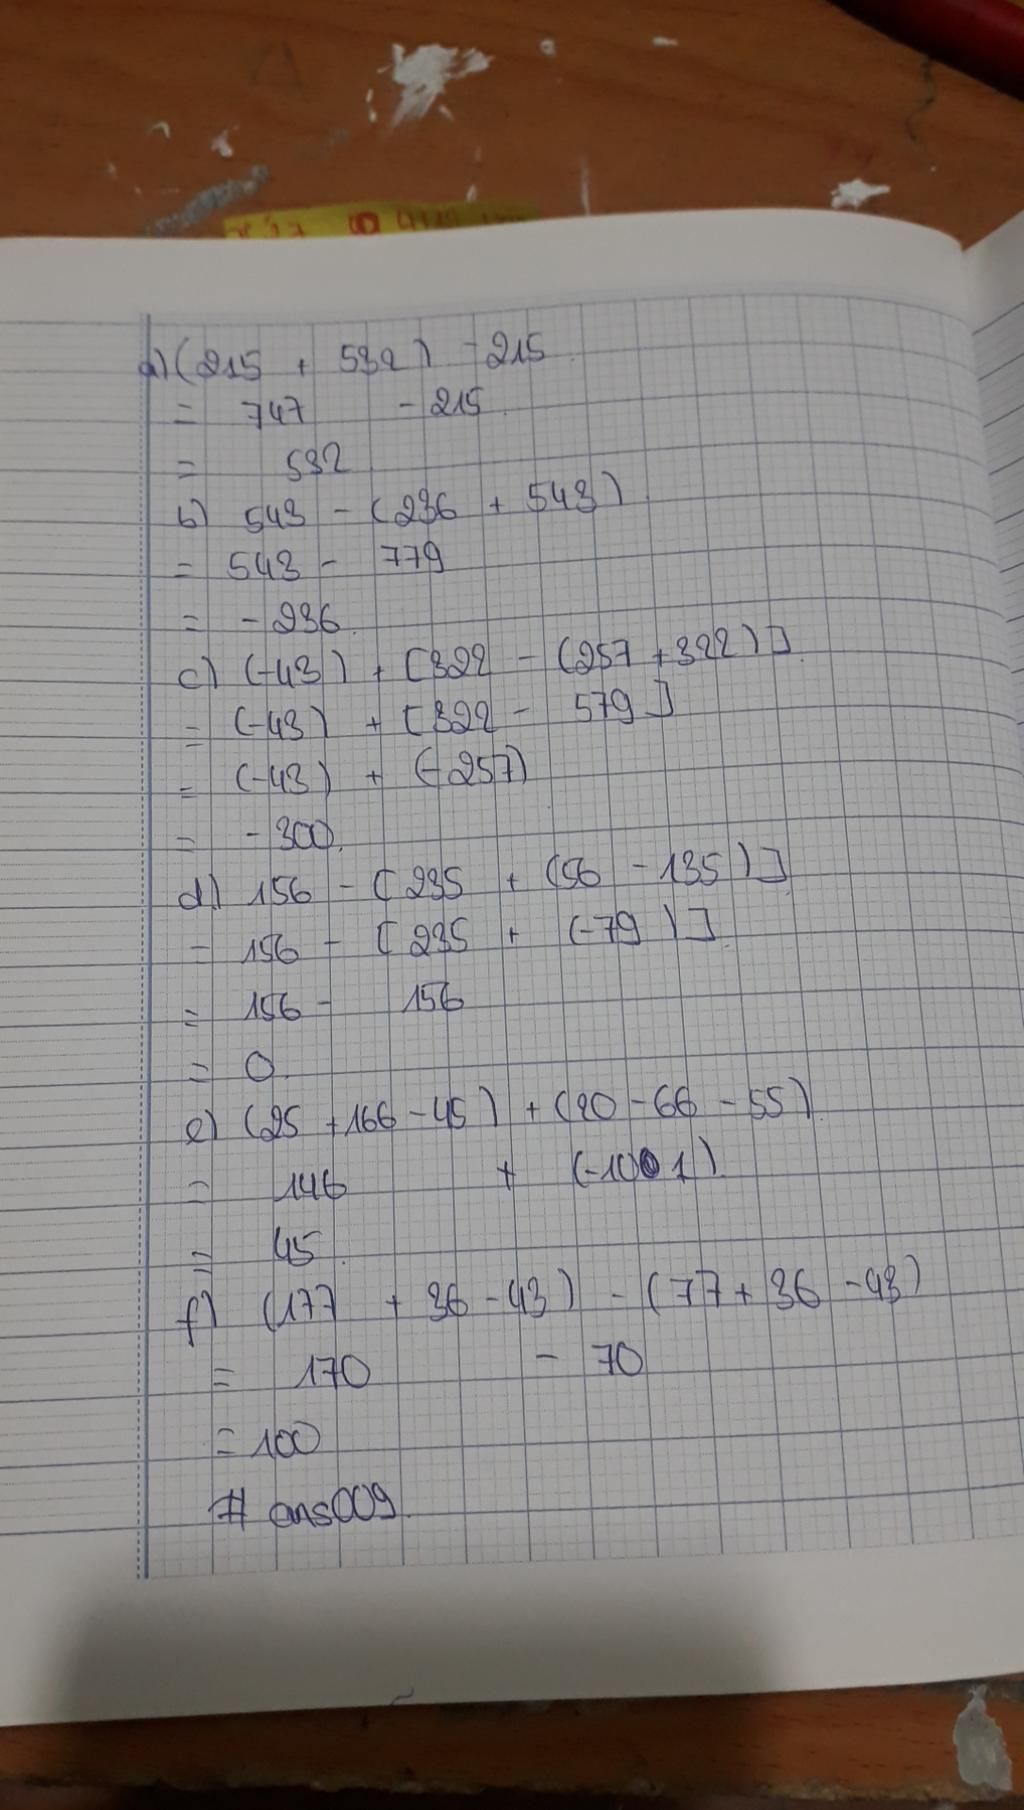 a) (215 + 532) - 215
= 747 - 215
= 532
b) 543 - (236 + 543)
= 543 - 779
= - 236.
c) (-43) + [322 - (257 + 322)].
= (-43) + [322 - 579]
= (-43) + (-257)
= - 300.
d) 156 - [235 + (56 - 135)]
= 156 - [235 + (-79)].
= 156 - 156
= 0.
e) (25 + 166 - 45) + (20 - 66 - 55).
= 146 + (-101).
= 45.
f) (177 + 36 - 43) - (77 + 36 - 43)
= 170 - 70
= 100
# ans009.